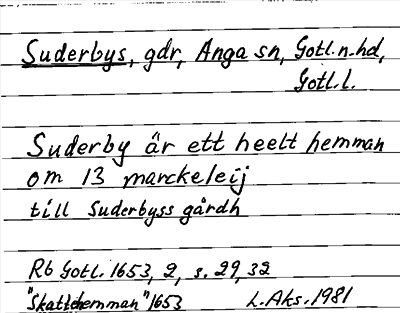 Suderbys, gdr, Anga sn, Gotl.n.hd,
Gotl.l.
Suderby är ett heelt hemman
om 13 marckeleij
till Suderbyss gårdh
Rb Gotl. 1653, 2, s. 29, 32
"Skattehemman" 1653 L. Aks. 1981